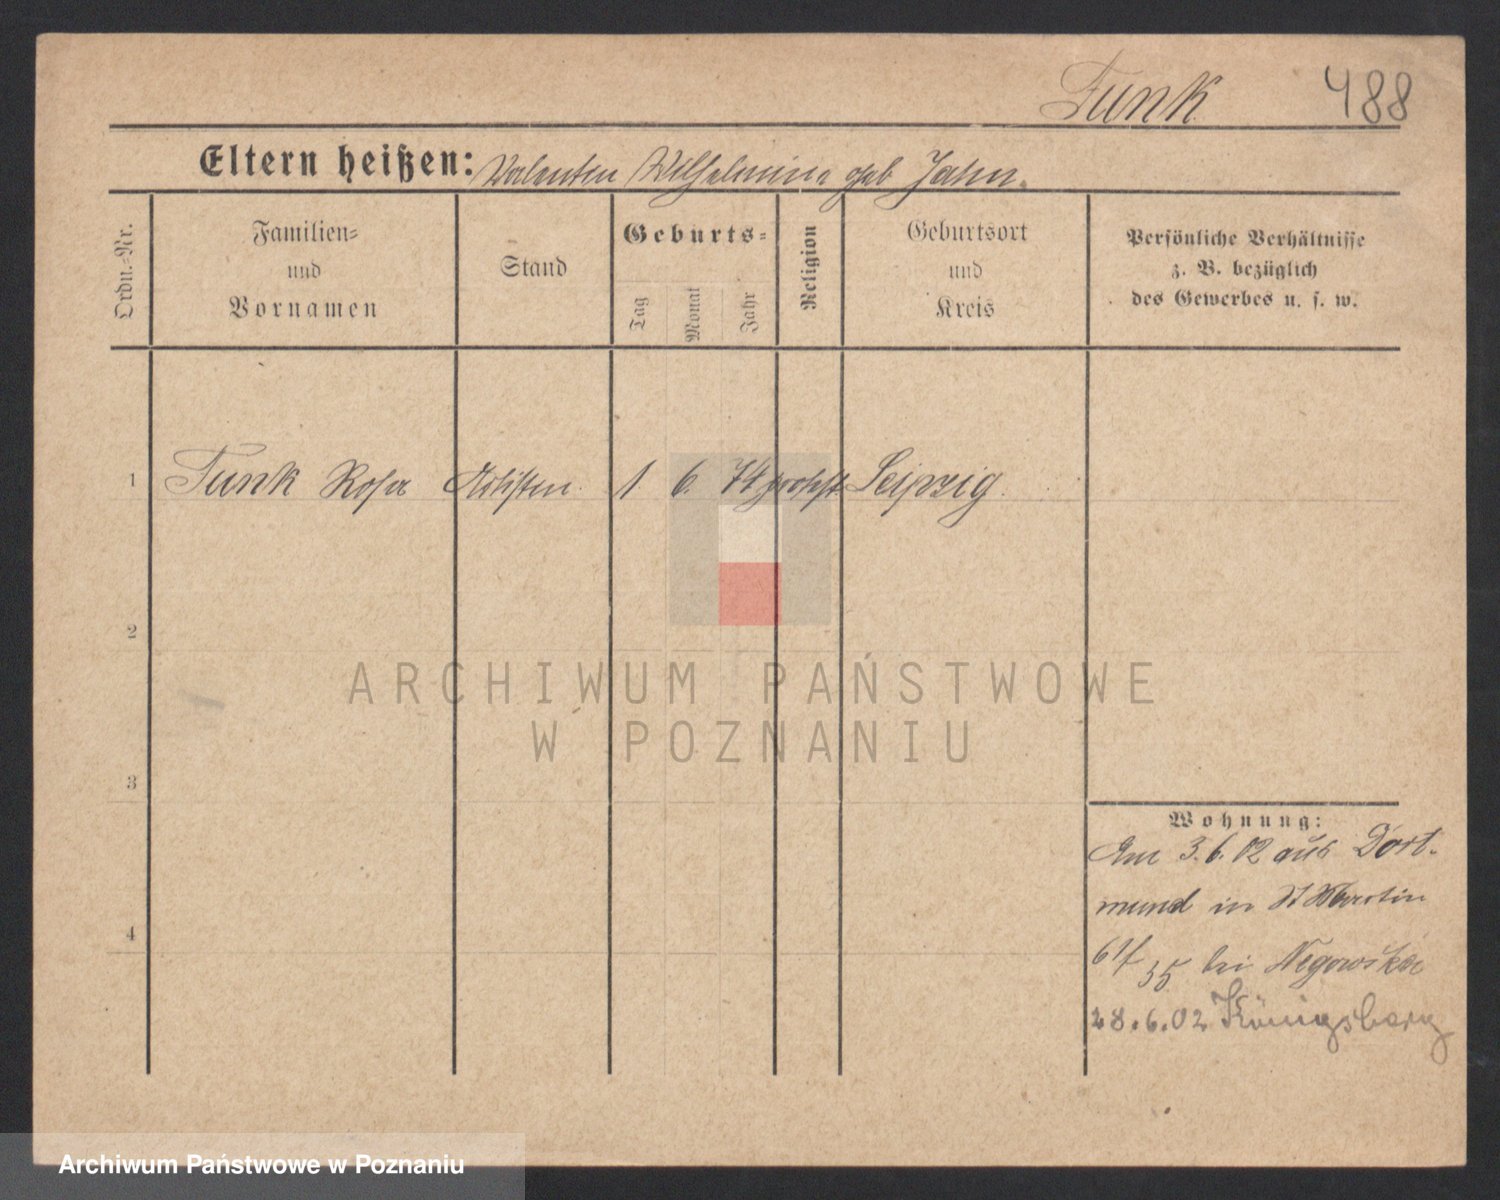 Funk 488
Eltern heißen: Valentin Wilhelmine geb Jahn.
Ordn.-Nr.
Familien-
und
Vornamen
Stand
Geburts-
Tag
Monat
Jahr
Religion
Geburtsort
und
Kreis
Persönliche Verhältnisse
z. B. bezüglich
des Gewerbes u. s. w.
1 Funk Rosa Artistin 1 6. 74 Leipzig.
2
3
4
Wohnung:
Am 3.6.02 aus Dort-
mund in St Martin
35 bei
28.6.02 Königsberg
ARCHIWUM PAŃSTWOWE
W POZNANIU
Archiwum Państwowe w Poznaniu